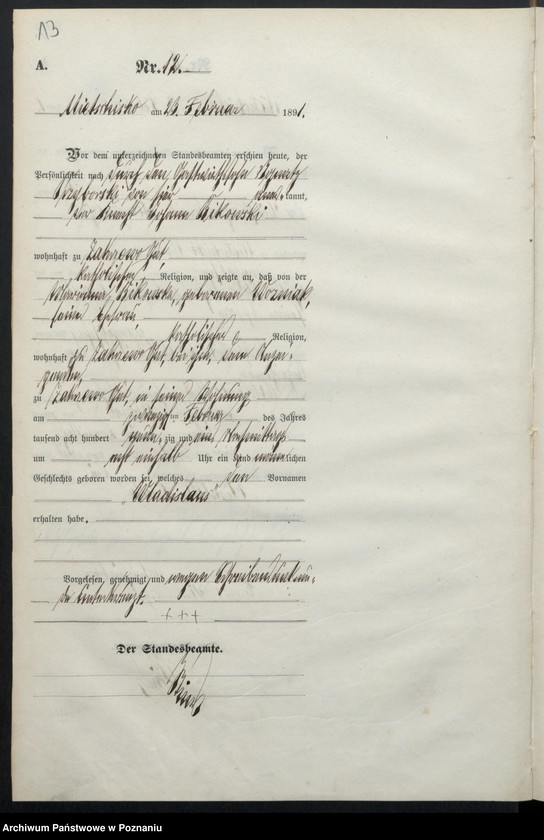 13
A.
Nr. 12.
Mietschisko am 23. Februar 1891.
Vor dem unterzeichneten Standesbeamten erschien heute, der
Persönlichkeit nach durch den
von hier kannt,
Johann Kikowski
wohnhaft zu Zakrzewo Gut
katholischer Religion, und zeigte an, daß von der
Marianna Kikowska, geborenen Wozniak,
seiner Ehefrau,
katholischer Religion,
wohnhaft zu Zakrzewo Gut, bei ihm,
zu Zakrzewo Gut, in seiner Wohnung
am zwanzigsten Februar des Jahres
tausend acht hundert neunzig und eins Vormittags
um acht einhalb Uhr ein Kind männlichen
Geschlechts geboren worden sei, welches den Vornamen
Wladislaus
erhalten habe.
Vorgelesen, genehmigt und wegen Schreibensunkun-
de unterkreuzt.
+++
Der Standesbeamte.
Archiwum Państwowe w Poznaniu